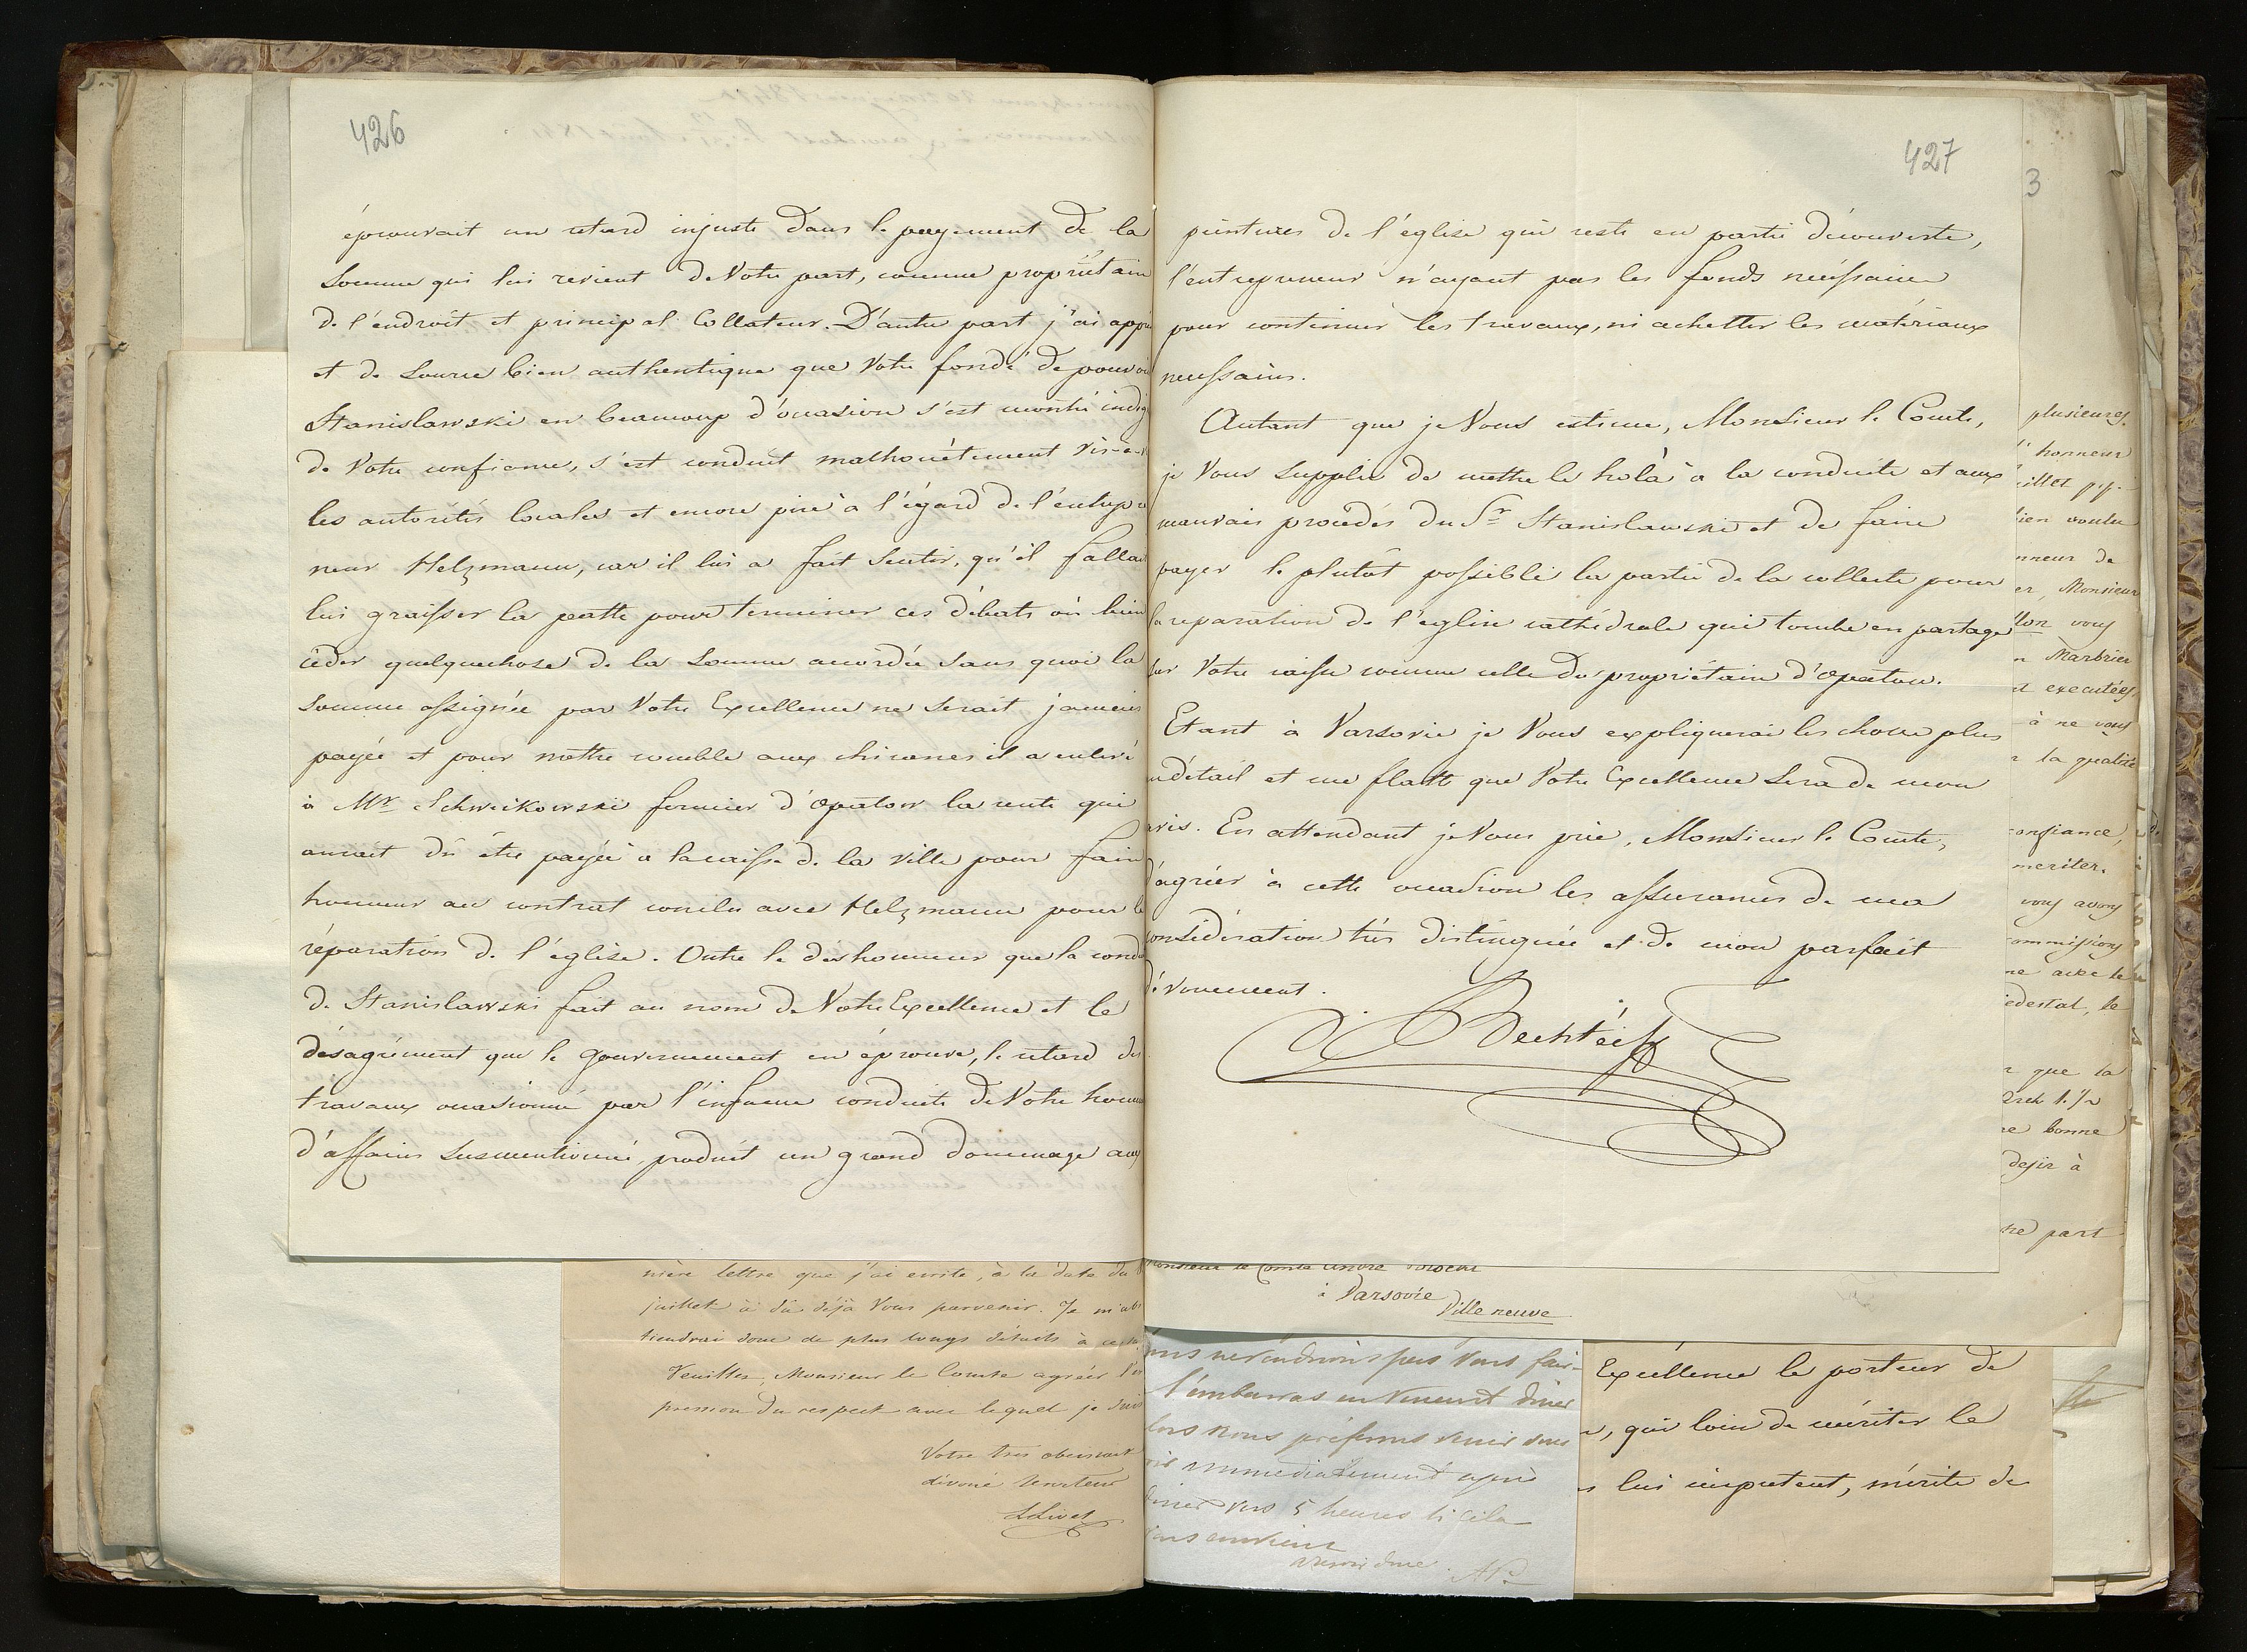 426
éprouvait un retard injuste dans le payement de la
Somme qui lui revient de Votre part, comme propriétaire
de l'endroit et principal Collateur. D'autre part j'ai appri
et de Source bien authentique que Votre fondé de pouvoi
Stanislawski en beaucoup d'ocasion s'est montré indig
de Votre confiance, s'est conduit malhonêtement vis-à-v
les autorités locales et encore pire à l'égard de l'entrepre
neur Helzmann, car il lui a fait Sentir, qu'il fallai
lui graisser la patte pour terminer ces débats où bien
céder quelquechose de la Somme accordée Sans quoi la
Somme assignée par Votre Excellence ne Serait jamais
payée et pour mettre comble aux chicanes il a enlevé
à Mr Schweikowski fermier d'Opatow la rente qui
aurait dû être payée à la caisse de la ville pour faire
honneur au contrat conclu avec Helzmann pour l
réparation de l'église. Outre le deshonneur que la condu
de Stanislawski fait au nom de Votre Excellence et le
désagrément que le Gouvernement en éprouve, le retard des
travaux ocasionné par l'infame conduite de Votre homme
d'affaires Susmentionné, produit un grand dommage aux
nière lettre que j'ai ecrite, à la date du
juillet a dû déjà Vous parvenir. Je m'abs
tiendrai donc de plus longs détails à ce
Veuillez, Monsieur le Comte agréer l'ex
pression du respect avec lequel je suis
Votre très obeissant
dévoué serviteur
427
3
peintures de l'église qui reste en partie découverte,
l'entrepreneur n'ayant pas les fonds nécessaires
pour continuer les travaux, ni achetter les matériaux
necessaires.
Autant que je Vous estime, Monsieur le Comte,
je Vous Supplie de mettre le holà à la conduite et aux
mauvais procédés du Sr Stanislawski et de faire
payer le plutôt possible la partie de la collecte pour
la reparation de l'église cathédrale qui tombe en partage
sur Votre caisse comme celle du propriétaire d'Opatow.
Etant à Varsovie je Vous expliquerai les choses plus
en détail et me flatte que Votre Excellence Sera de mon
avis. En attendant je Vous prie, Monsieur le Comte,
d'agréer à cette ocasion les assurances de ma
considération très distinguée et de mon parfait
dévouement.
Bechtéieff
Monsieur le Comte André
à Varsovie
Ville neuve
plusieurs
l'honneur
juillet p.p.
bien voulu
nneur de
er, Monsieur
vous
n Marbrier
executées
à ne vous
la qualité
confiance,
meriter.
vous avons
commissions
ne avec le
iedestal, le
que la
re bonne
desir à
part
nous ne viendrions pas Vous faire
l'embarras en Venant diner
alors nous préférons venir vous
voir immediatement après
diner vers 5 heures si cela
vous convient
Excellence le porteur de
, qui loin de mériter le
lui imputent, mérite de